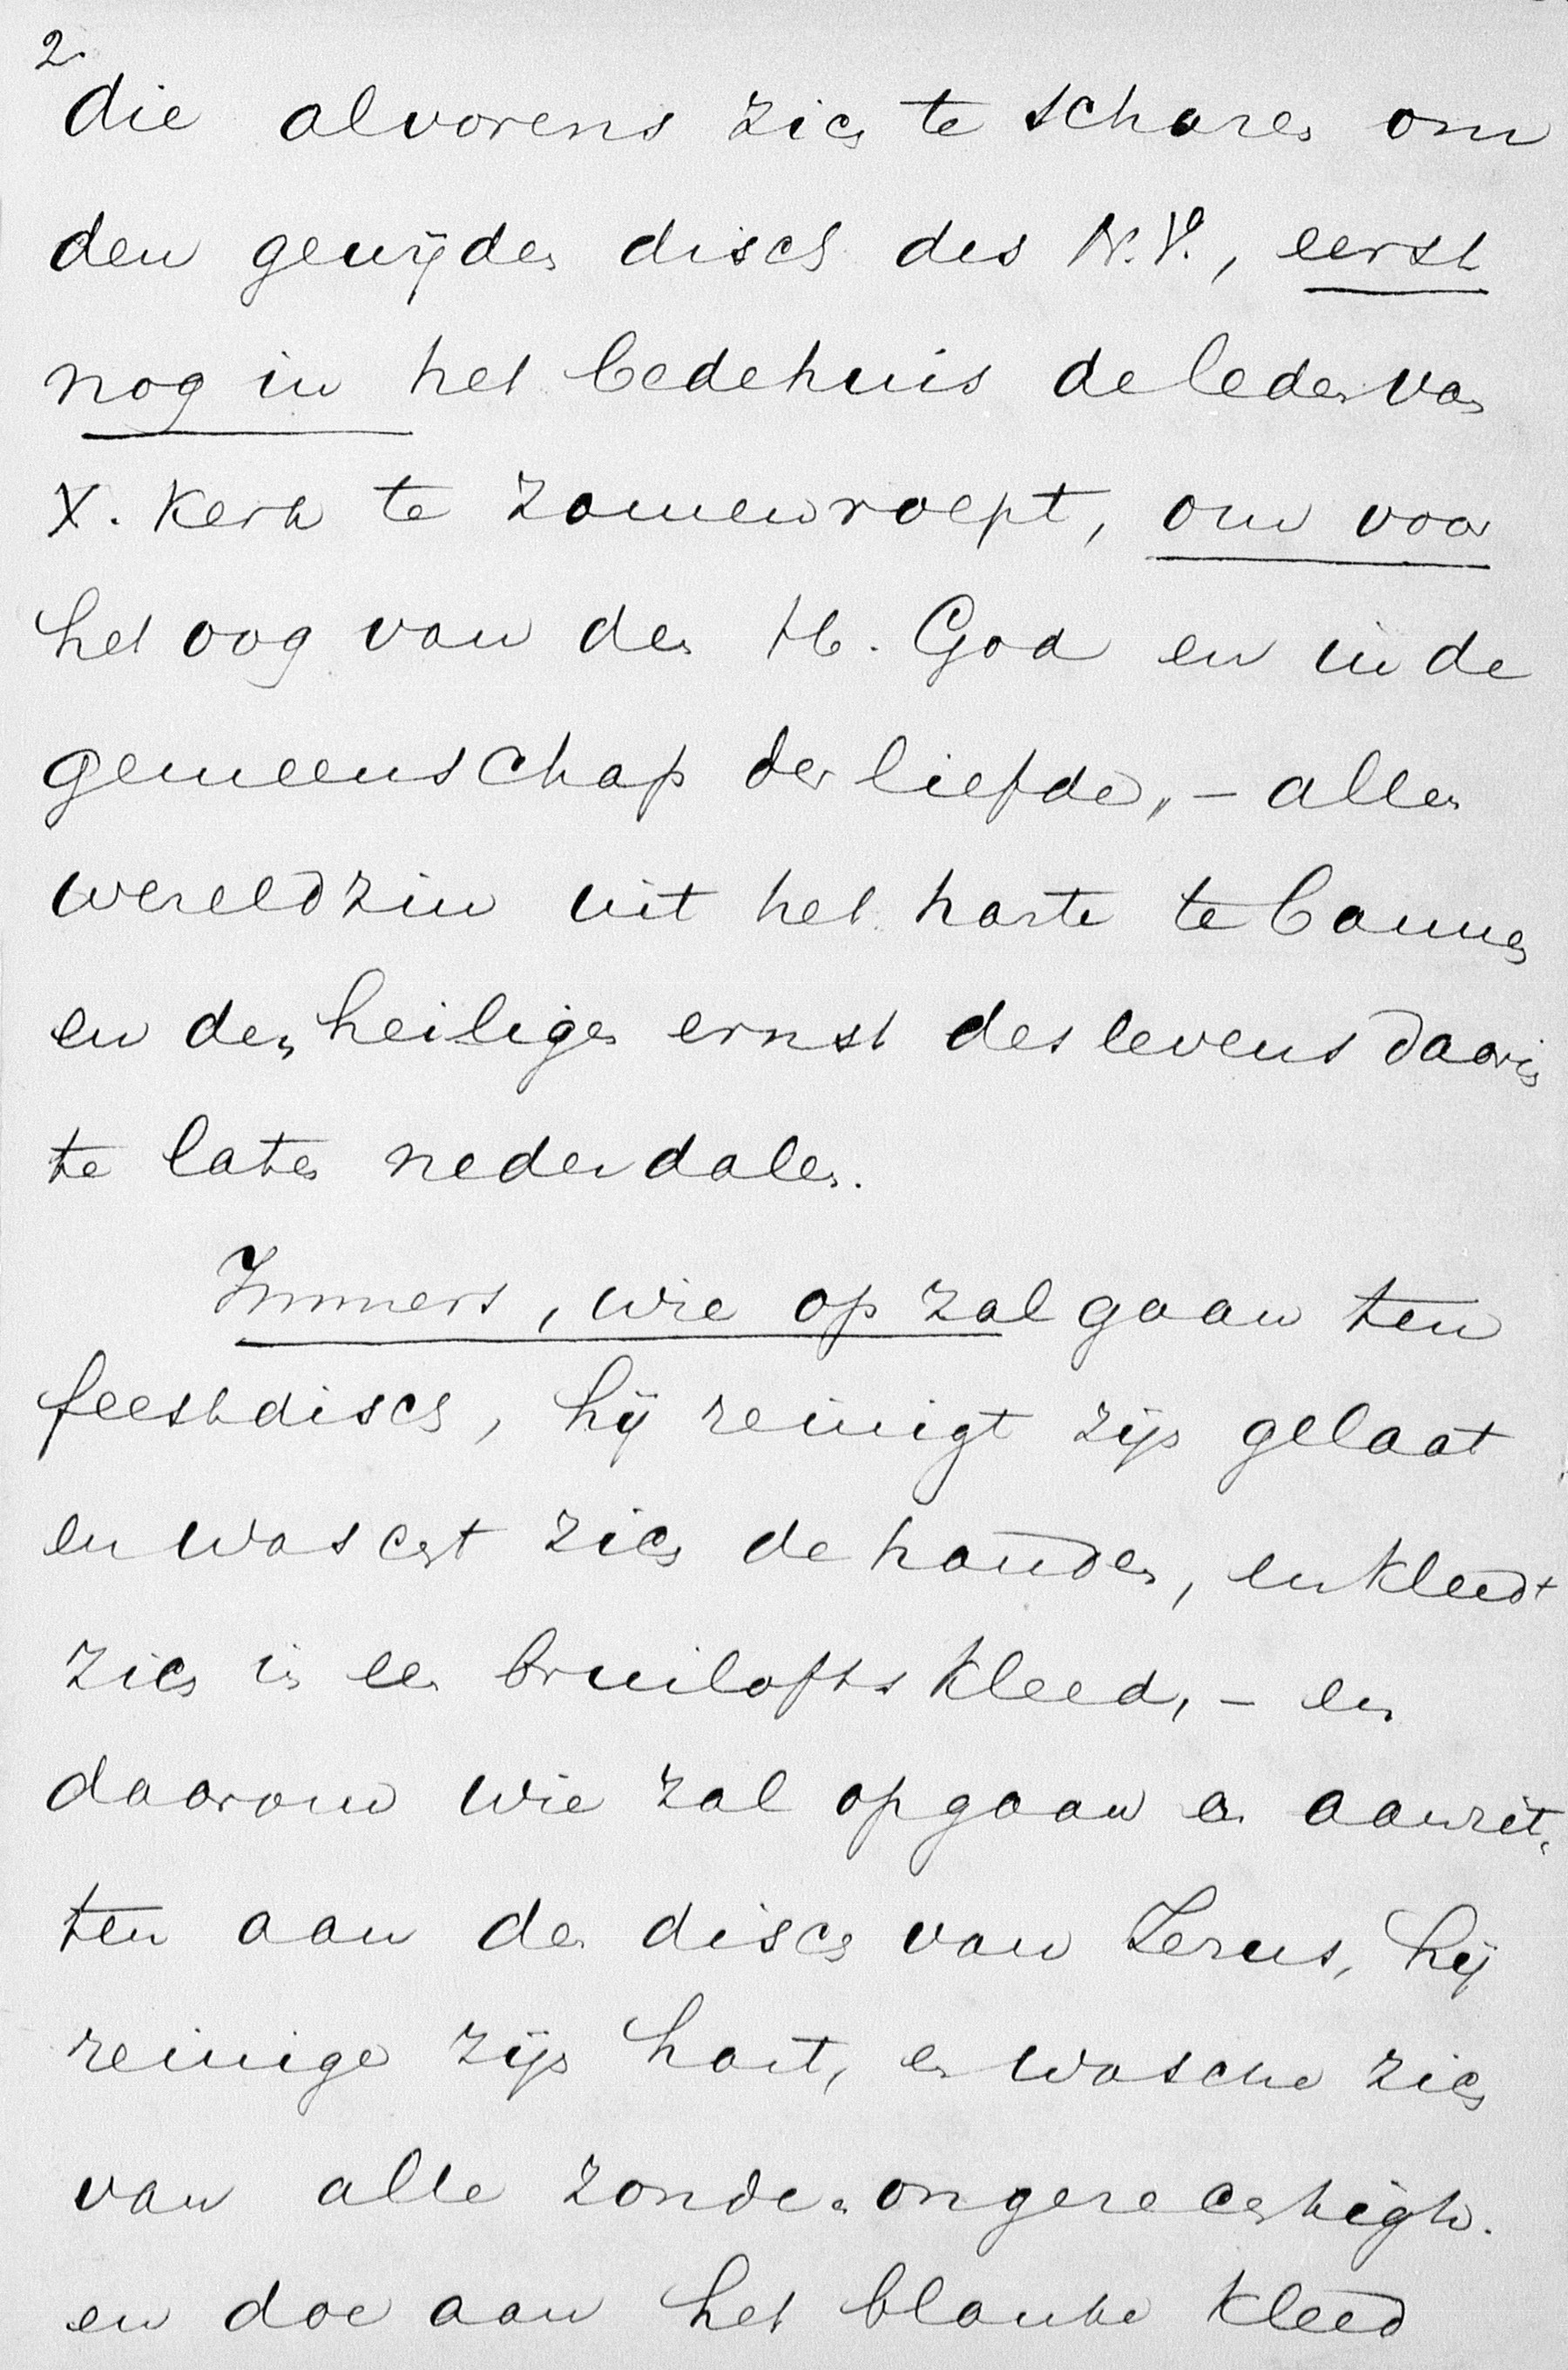 2
die alvorens zich te scharen om
den gewijden disch des N.V., eerst
nog in het bedehuis de leden van
X. Kerk te zamenroept, om voor
het oog van den H. God en in de
gemeenschap der liefde, – allen
wereldzin uit het harte te bannen
en den heiligen ernst des levens daarin
te laten nederdalen.
Immers, wie op zal gaan ten
feestdisch, hij reinigt zijn gelaat
en wascht zich de handen, en kleedt
zich in een bruiloftskleed, – en
daarom wie zal opgaan en aanzit-
ten aan den disch van Jezus, hij
reinige zijn hart, en wassche zich
van alle zonde en ongerechtigh.
en doe aan het blanke kleed